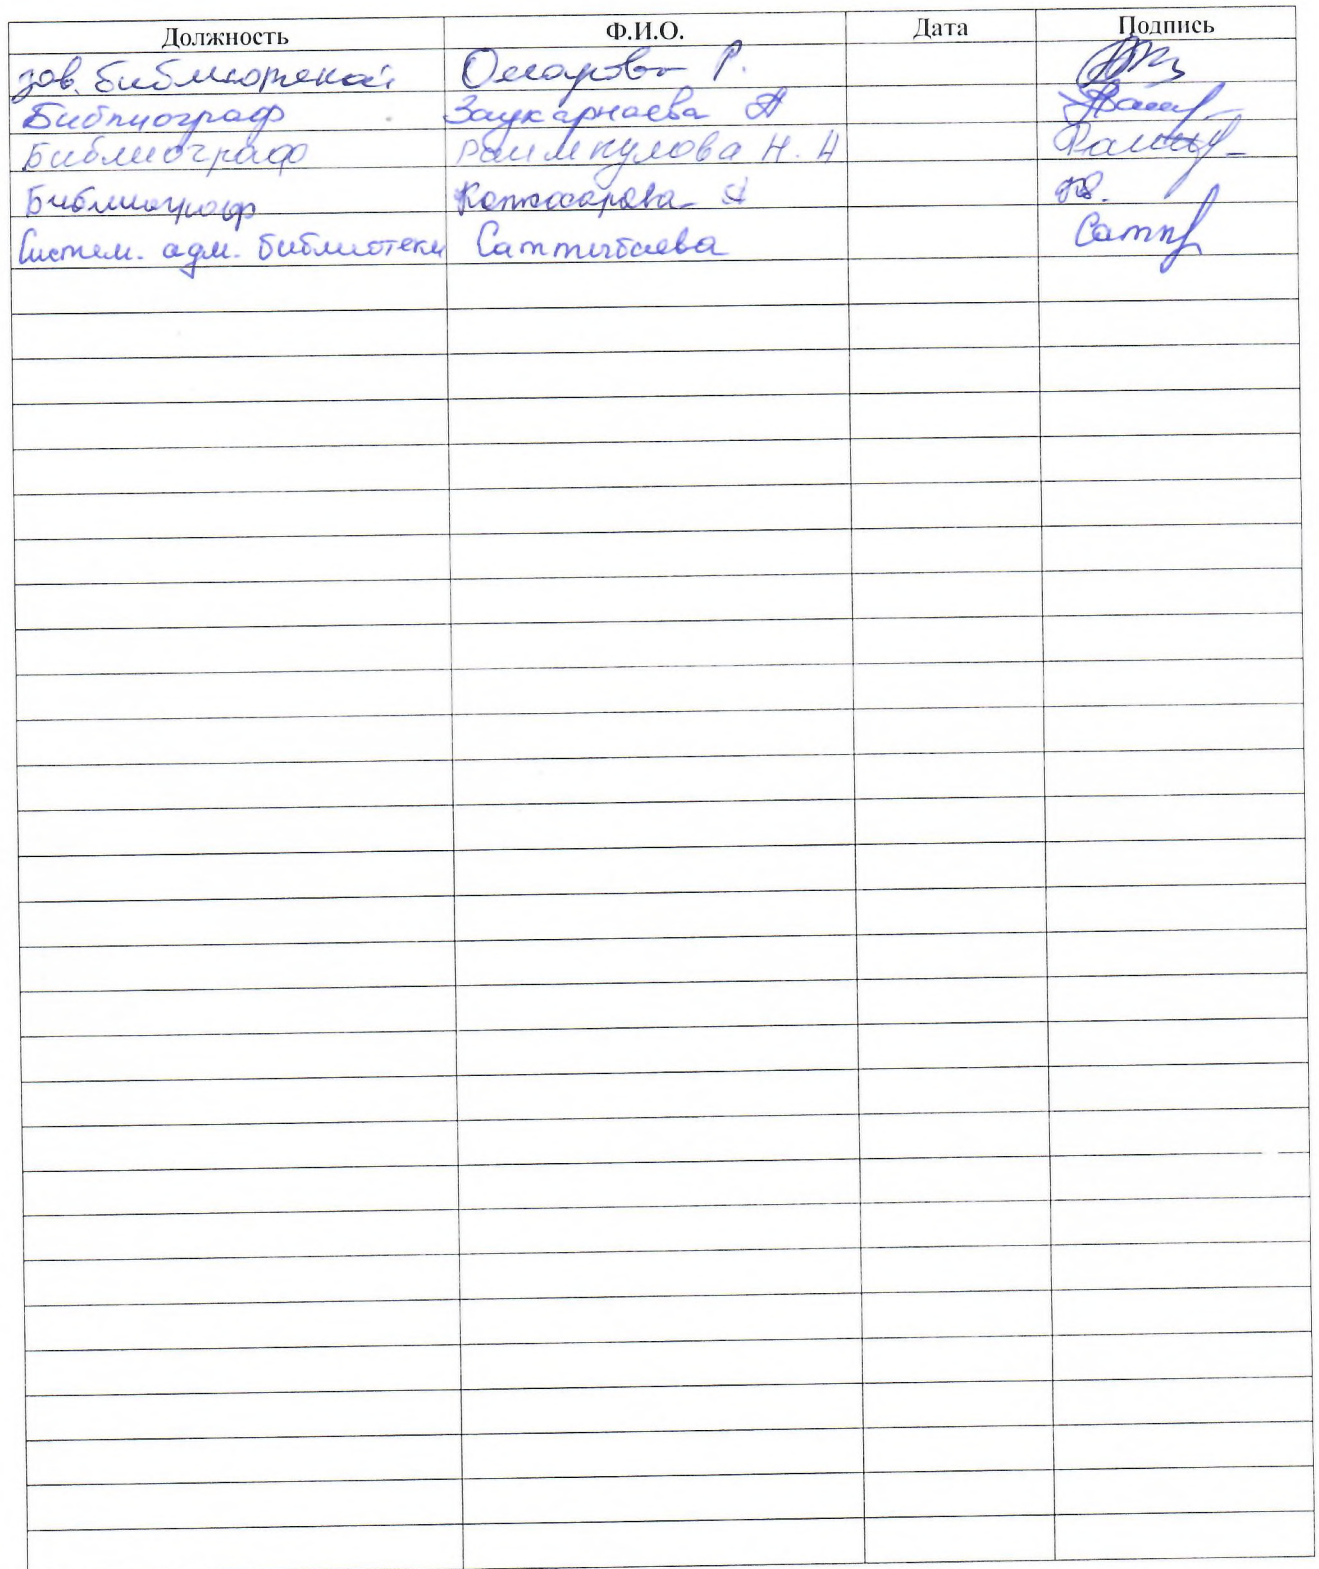 Должность Ф.И.О. Дата Подпись
зав. библиотекой Омарова Р.
Библиограф Заукарнаева А
Библиограф Раимкулова Н. А
Библиограф А
Систем. адм. библиотеки Саттыбаева Сатт